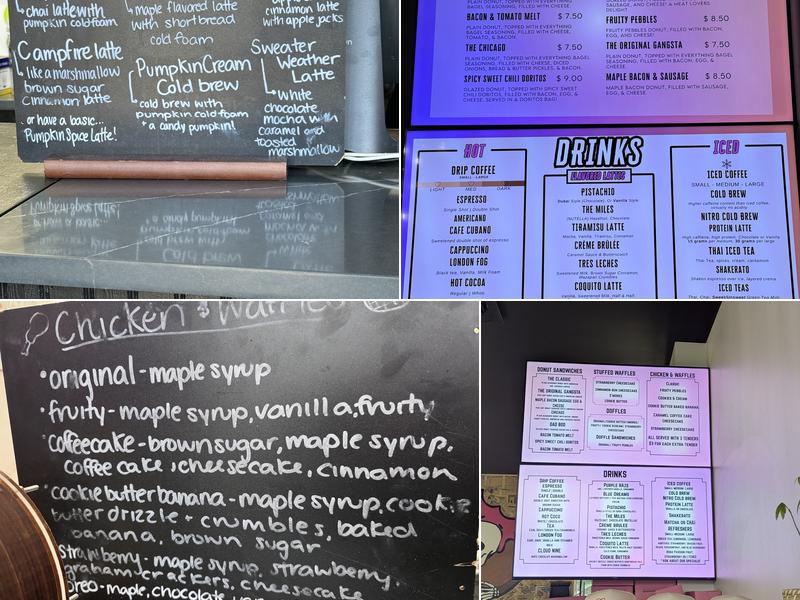 chai latte with
pumpkin cold foam
maple flavored latte
with shortbread
cold foam
cinnamon latte
with apple jacks
Campfire latte
like a marshmallow
brown sugar
cinnamon latte
Pumpkin Cream
Cold brew
cold brew with
pumpkin cold foam
+ a candy pumpkin!
Sweater
Weather
Latte
white
chocolate
mocha with
caramel and
toasted
marshmallow
or have a basic...
Pumpkin Spice Latte!
BAGEL SEASONING, FILLED WITH CHEESE.
BACON & TOMATO MELT $ 7.50
PLAIN DONUT, TOPPED WITH EVERYTHING
BAGEL SEASONING, FILLED WITH CHEESE,
TOMATO, & BACON.
THE CHICAGO $ 7.50
PLAIN DONUT, TOPPED WITH EVERYTHING BAGEL
SEASONING, FILLED WITH CHEESE, DICED
ONIONS, BREAD & BUTTER PICKLES, & BACON.
SPICY SWEET CHILI DORITOS $ 9.00
GLAZED DONUT, TOPPED WITH SPICY SWEET
CHILI DORITOS, FILLED WITH BACON, EGG, &
CHEESE, SERVED IN A DORITOS BAG!
SAUSAGE, AND CHEESE! A MEAT LOVERS
DELIGHT.
FRUITY PEBBLES $ 8.50
FRUITY PEBBLES DONUT, FILLED WITH BACON,
EGG, AND CHEESE!
THE ORIGINAL GANGSTA $ 7.50
PLAIN DONUT, TOPPED WITH EVERYTHING BAGEL
SEASONING, FILLED WITH BACON, EGG, &
CHEESE.
MAPLE BACON & SAUSAGE $ 8.50
MAPLE BACON DONUT, FILLED WITH SAUSAGE,
EGG, & CHEESE.
HOT
DRIP COFFEE
SMALL - LARGE
LIGHT MED DARK
ESPRESSO
Single Shot | Double Shot
AMERICANO
CAFE CUBANO
Sweetened double shot of espresso
CAPPUCCINO
LONDON FOG
Black tea, Vanilla, Milk Foam
HOT COCOA
Regular | White
DRINKS
FLAVORED LATTES
PISTACHIO
Dubai Style (Chocolate), Or Vanilla Style
THE MILES
(NUTELLA) Hazelnut, Chocolate
TIRAMISU LATTE
Mocha, Vanilla, Tiramisu, Cinnamon
CRÈME BRÛLÉE
Caramel Sauce & Butterscotch
TRES LECHES
Sweetened Milk, Brown Sugar Cinnamon,
Marzapan Crumbles
COQUITO LATTE
Vanilla, Sweetened Milk, Half & Half,
ICED
ICED COFFEE
SMALL - MEDIUM - LARGE
COLD BREW
Higher caffeine content than iced coffee,
virtually no acidity
NITRO COLD BREW
PROTEIN LATTE
High caffeine, high protein, Chocolate or Vanilla
15 grams per medium, 30 grams per large
THAI ICED TEA
Thai Tea, spices, cream, cardamom
SHAKERATO
Shaken espresso over ice, layered crema
ICED TEAS
Thai, Chai, Sweet/Unsweet Green Tea
Chicken & Waffles
• original - maple syrup
• fruity - maple syrup, vanilla, fruity
• coffeecake - brown sugar, maple syrup,
coffee cake, cheesecake, cinnamon
• cookie butter banana - maple syrup, cookie
butter drizzle, crumbles, baked
banana, brown sugar
strawberry - maple syrup, strawberry,
graham crackers, cheesecake
oreo - maple, chocolate,
DONUT SANDWICHES
THE CLASSIC
THE ORIGINAL GANGSTA
MAPLE BACON SAUSAGE EGG &
CHEESE
CHICAGO
DAD BOD
BACON TOMATO MELT
SPICY SWEET CHILI DORITOS
BACON TOMATO MELT
STUFFED WAFFLES
STRAWBERRY CHEESECAKE
CINNAMON BUN CHEESECAKE
S'MORES
COOKIE BUTTER
DOFFLES
DOFFLE SANDWICHES
ORIGINAL/FRUITY PEBBLES
CHICKEN & WAFFLES
CLASSIC
FRUITY PEBBLES
COOKIES & CREAM
COOKIE BUTTER BAKED BANANA
CARAMEL COFFEE CAKE
CHEESECAKE
STRAWBERRY CHEESECAKE
ALL SERVED WITH 3 TENDERS
$3 FOR EACH EXTRA TENDER
DRINKS
DRIP COFFEE
ESPRESSO
CAFE CUBANO
CAPPUCCINO
HOT COCO
TEA
LONDON FOG
CLOUD NINE
PURPLE HAZE
BLUE DREAMS
PISTACHIO
THE MILES
CREME BRULEE
TRES LECHES
COQUITO LATTE
COOKIE BUTTER
ICED COFFEE
SMALL MEDIUM LARGE
COLD BREW
NITRO COLD BREW
PROTEIN LATTE
SHAKERATO
MATCHA OR CHAI
REFRESHERS
SMALL MEDIUM LARGE